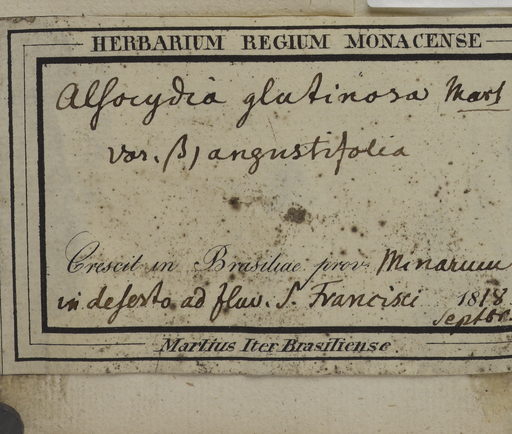 HERBARIUM REGIUM MONACENSE
Alsocydia glutinosa Mart
var. β) angustifolia
Crescit in Brasiliae prov. Minarum
in deserto ad fluv. S. Francisci 1818
Septbr
Martius Iter Brasiliense.